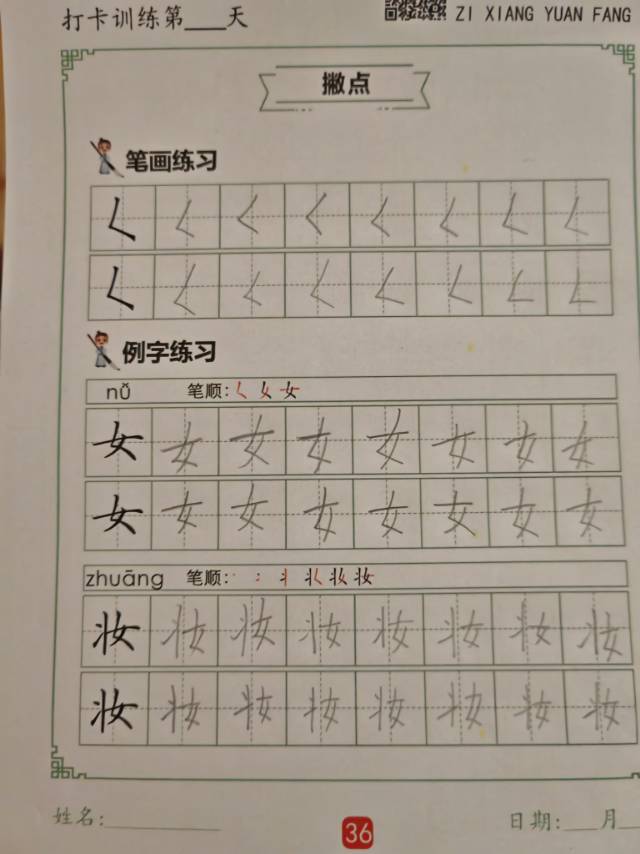 打卡训练第___天 ZI XIANG YUAN FANG
撇点
笔画练习
𡿨 𡿨 𡿨 𡿨 𡿨 𡿨 𡿨 𡿨
𡿨 𡿨 𡿨 𡿨 𡿨 𡿨 𡿨 𡿨
例字练习
nǚ 笔顺: 𡿨 女 女
女 女 女 女 女 女 女 女
女 女 女 女 女 女 女 女
zhuāng 笔顺: 丶 冫 丬 妆 妆 妆
妆 妆 妆 妆 妆 妆 妆 妆
妆 妆 妆 妆 妆 妆 妆 妆
姓名:__________ 36 日期:___月__